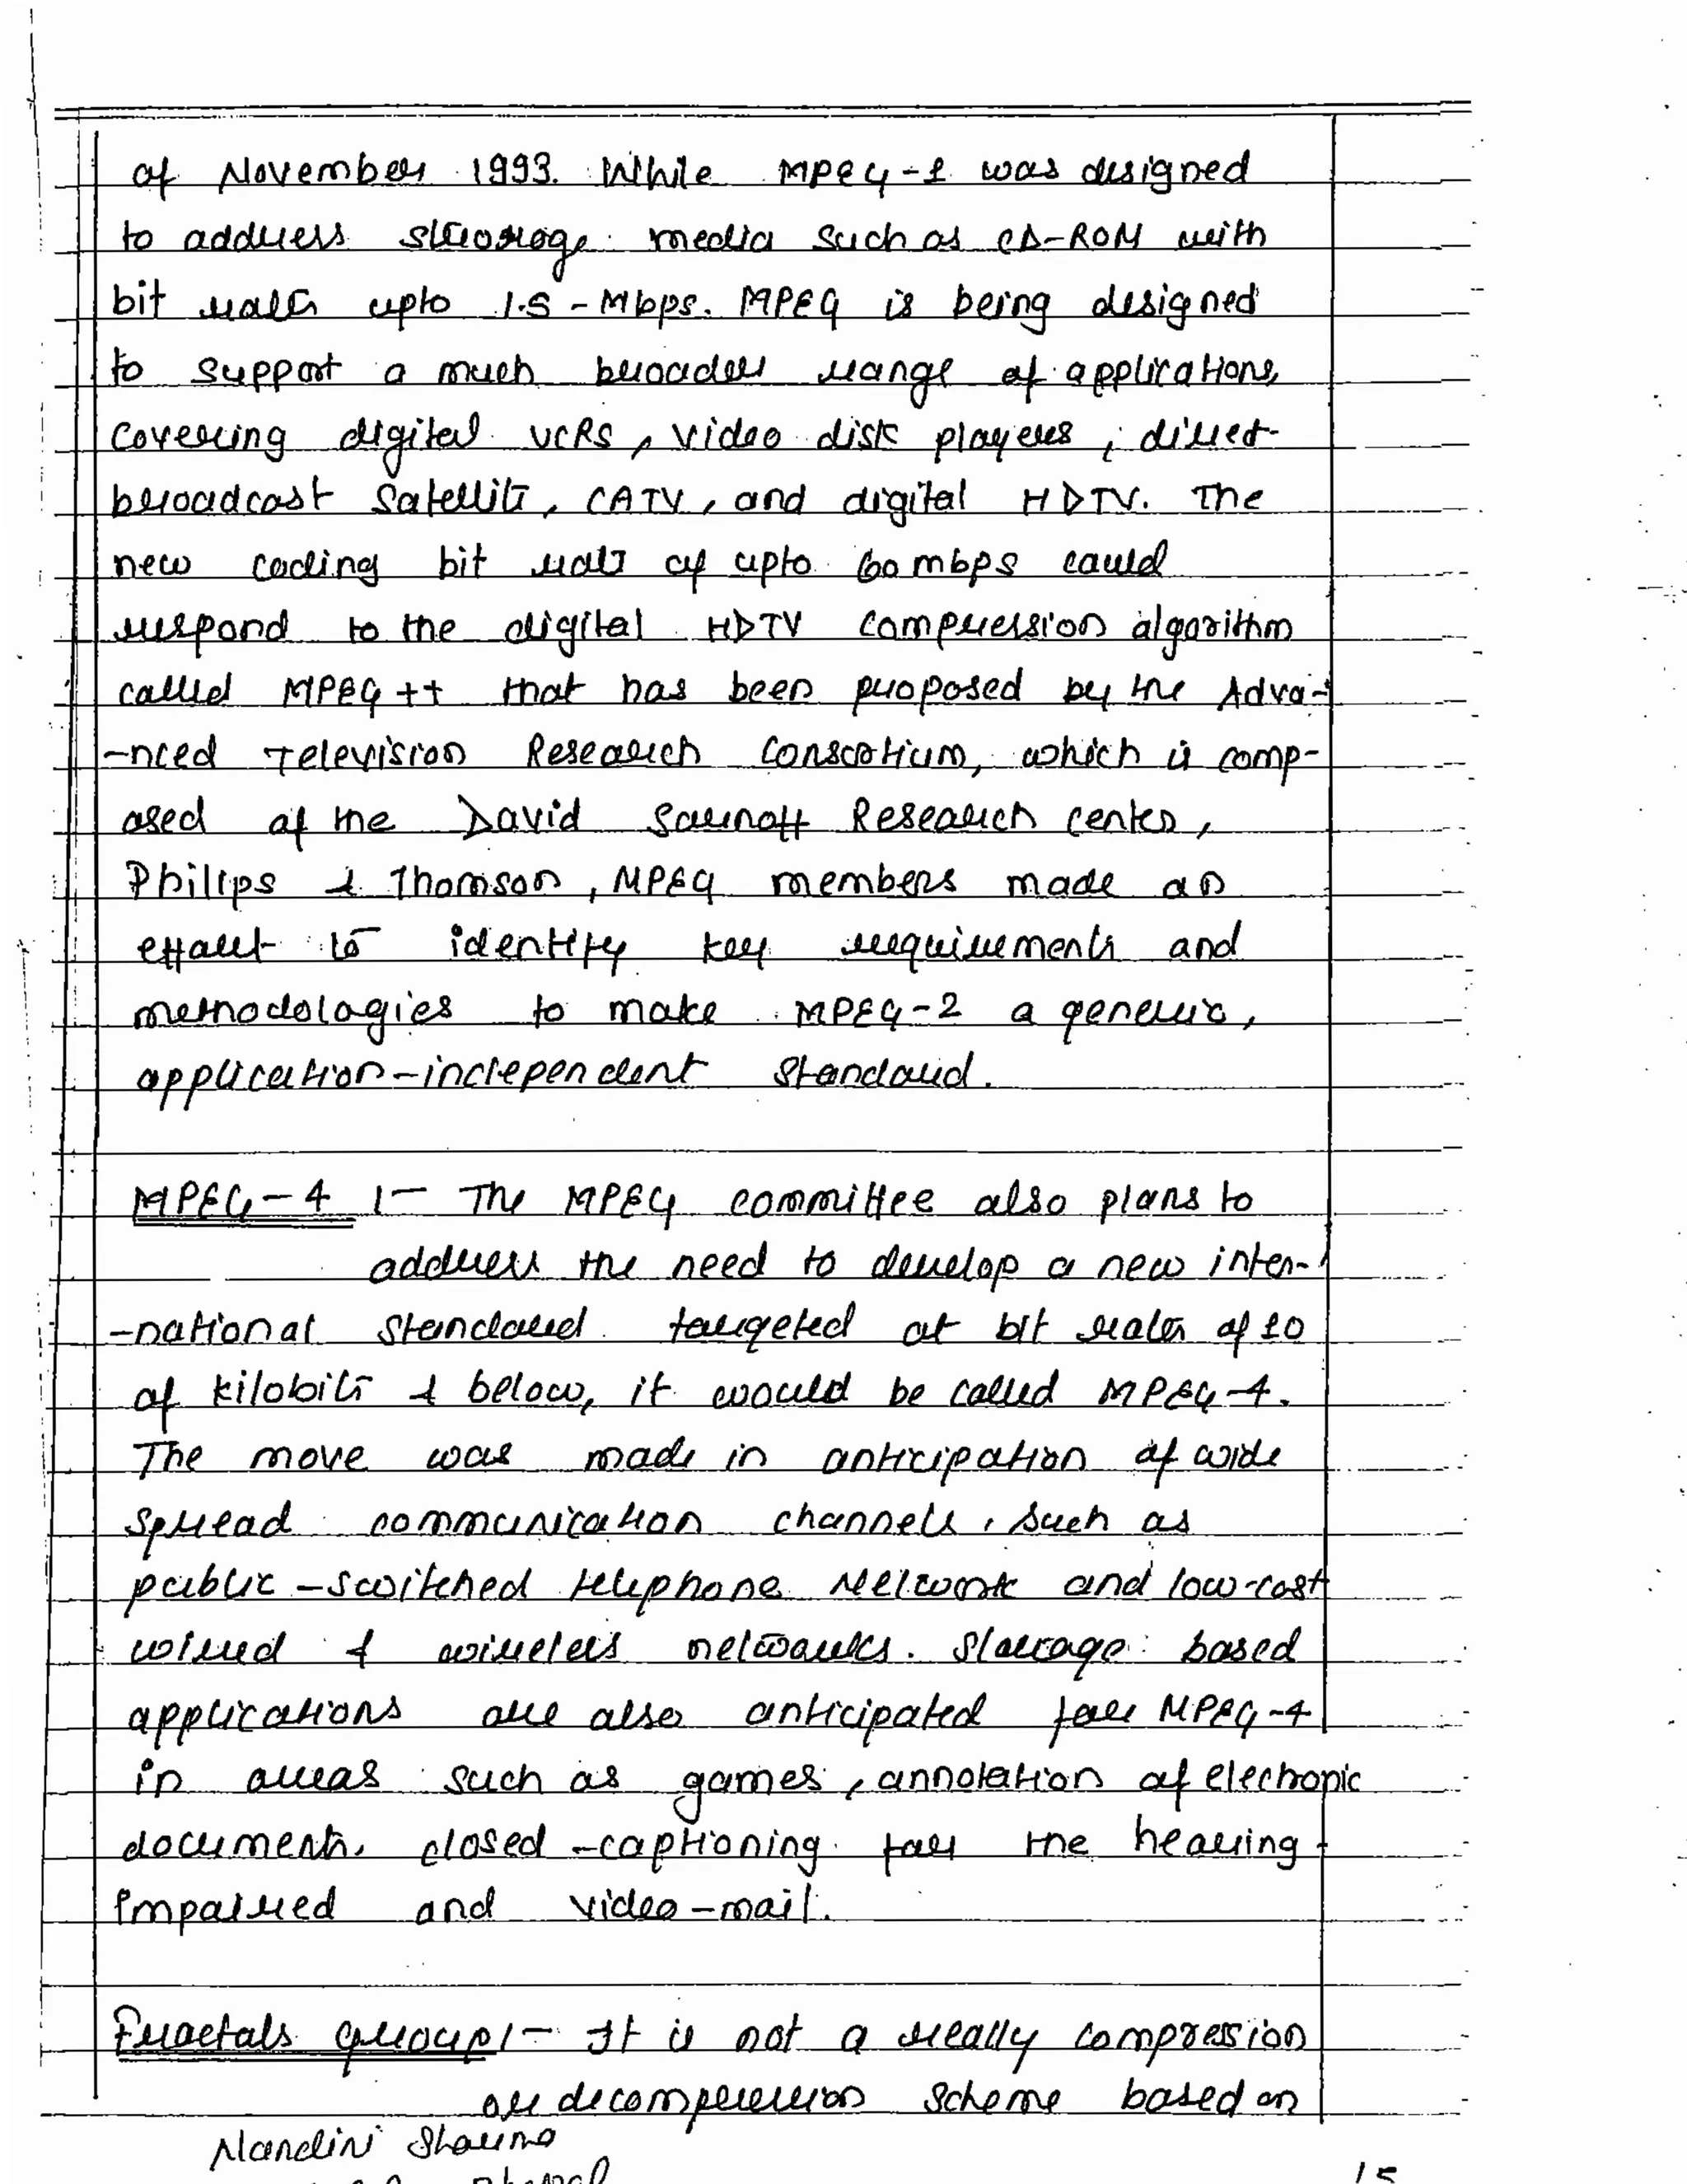 of November 1993. While MPEG-1 was designed
to address storage media such as CD-ROM with
bit rates upto 1.5-Mbps. MPEG is being designed
to support a much broader range of applications,
covering digital VCRS, video disk players, direct-
broadcast satellite, CATV, and digital HDTV. The
new coding bit rate of upto 60 mbps could
respond to the digital HDTV compression algorithm
called MPEG++ that has been proposed by the Adva-
-nced Television Research Consortium, which is comp-
osed of the David Sarnoff Research center,
Philips & Thomson, MPEG members made an
effort to identify key requirements and
methodologies to make MPEG-2 a generic,
application-independent standard.
MPEG-4 :- The MPEG committee also plans to
address the need to develop a new inter-
-national standard targeted at bit rates of 10
of kilobits & below, it would be called MPEG-4.
The move was made in anticipation of wide
spread communication channels, such as
public-switched telephone Network and low-cost
wired & wireless networks. Storage based
applications are also anticipated for MPEG-4
in areas such as games, annotation of electronic
documents, closed-captioning for the hearing-
Impaired and video-mail.
Fractals group:- It is not a really compression
or decompression scheme based on
Nandini Sharma
15